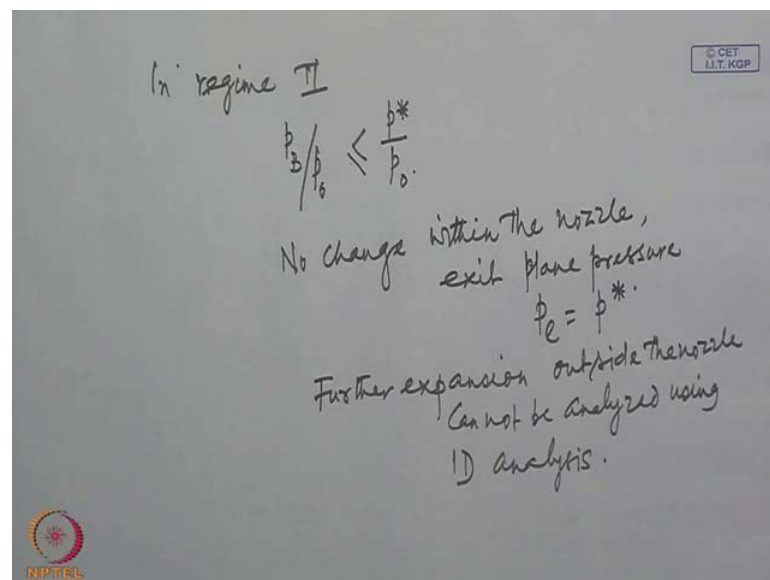 In regime II
p_B/p_0 ≤ p*/p_0.
No change within the nozzle,
exit plane pressure
p_e = p*.
Further expansion outside the nozzle
Can not be analyzed using
1D analysis.
© CET
I.I.T. KGP
NPTEL